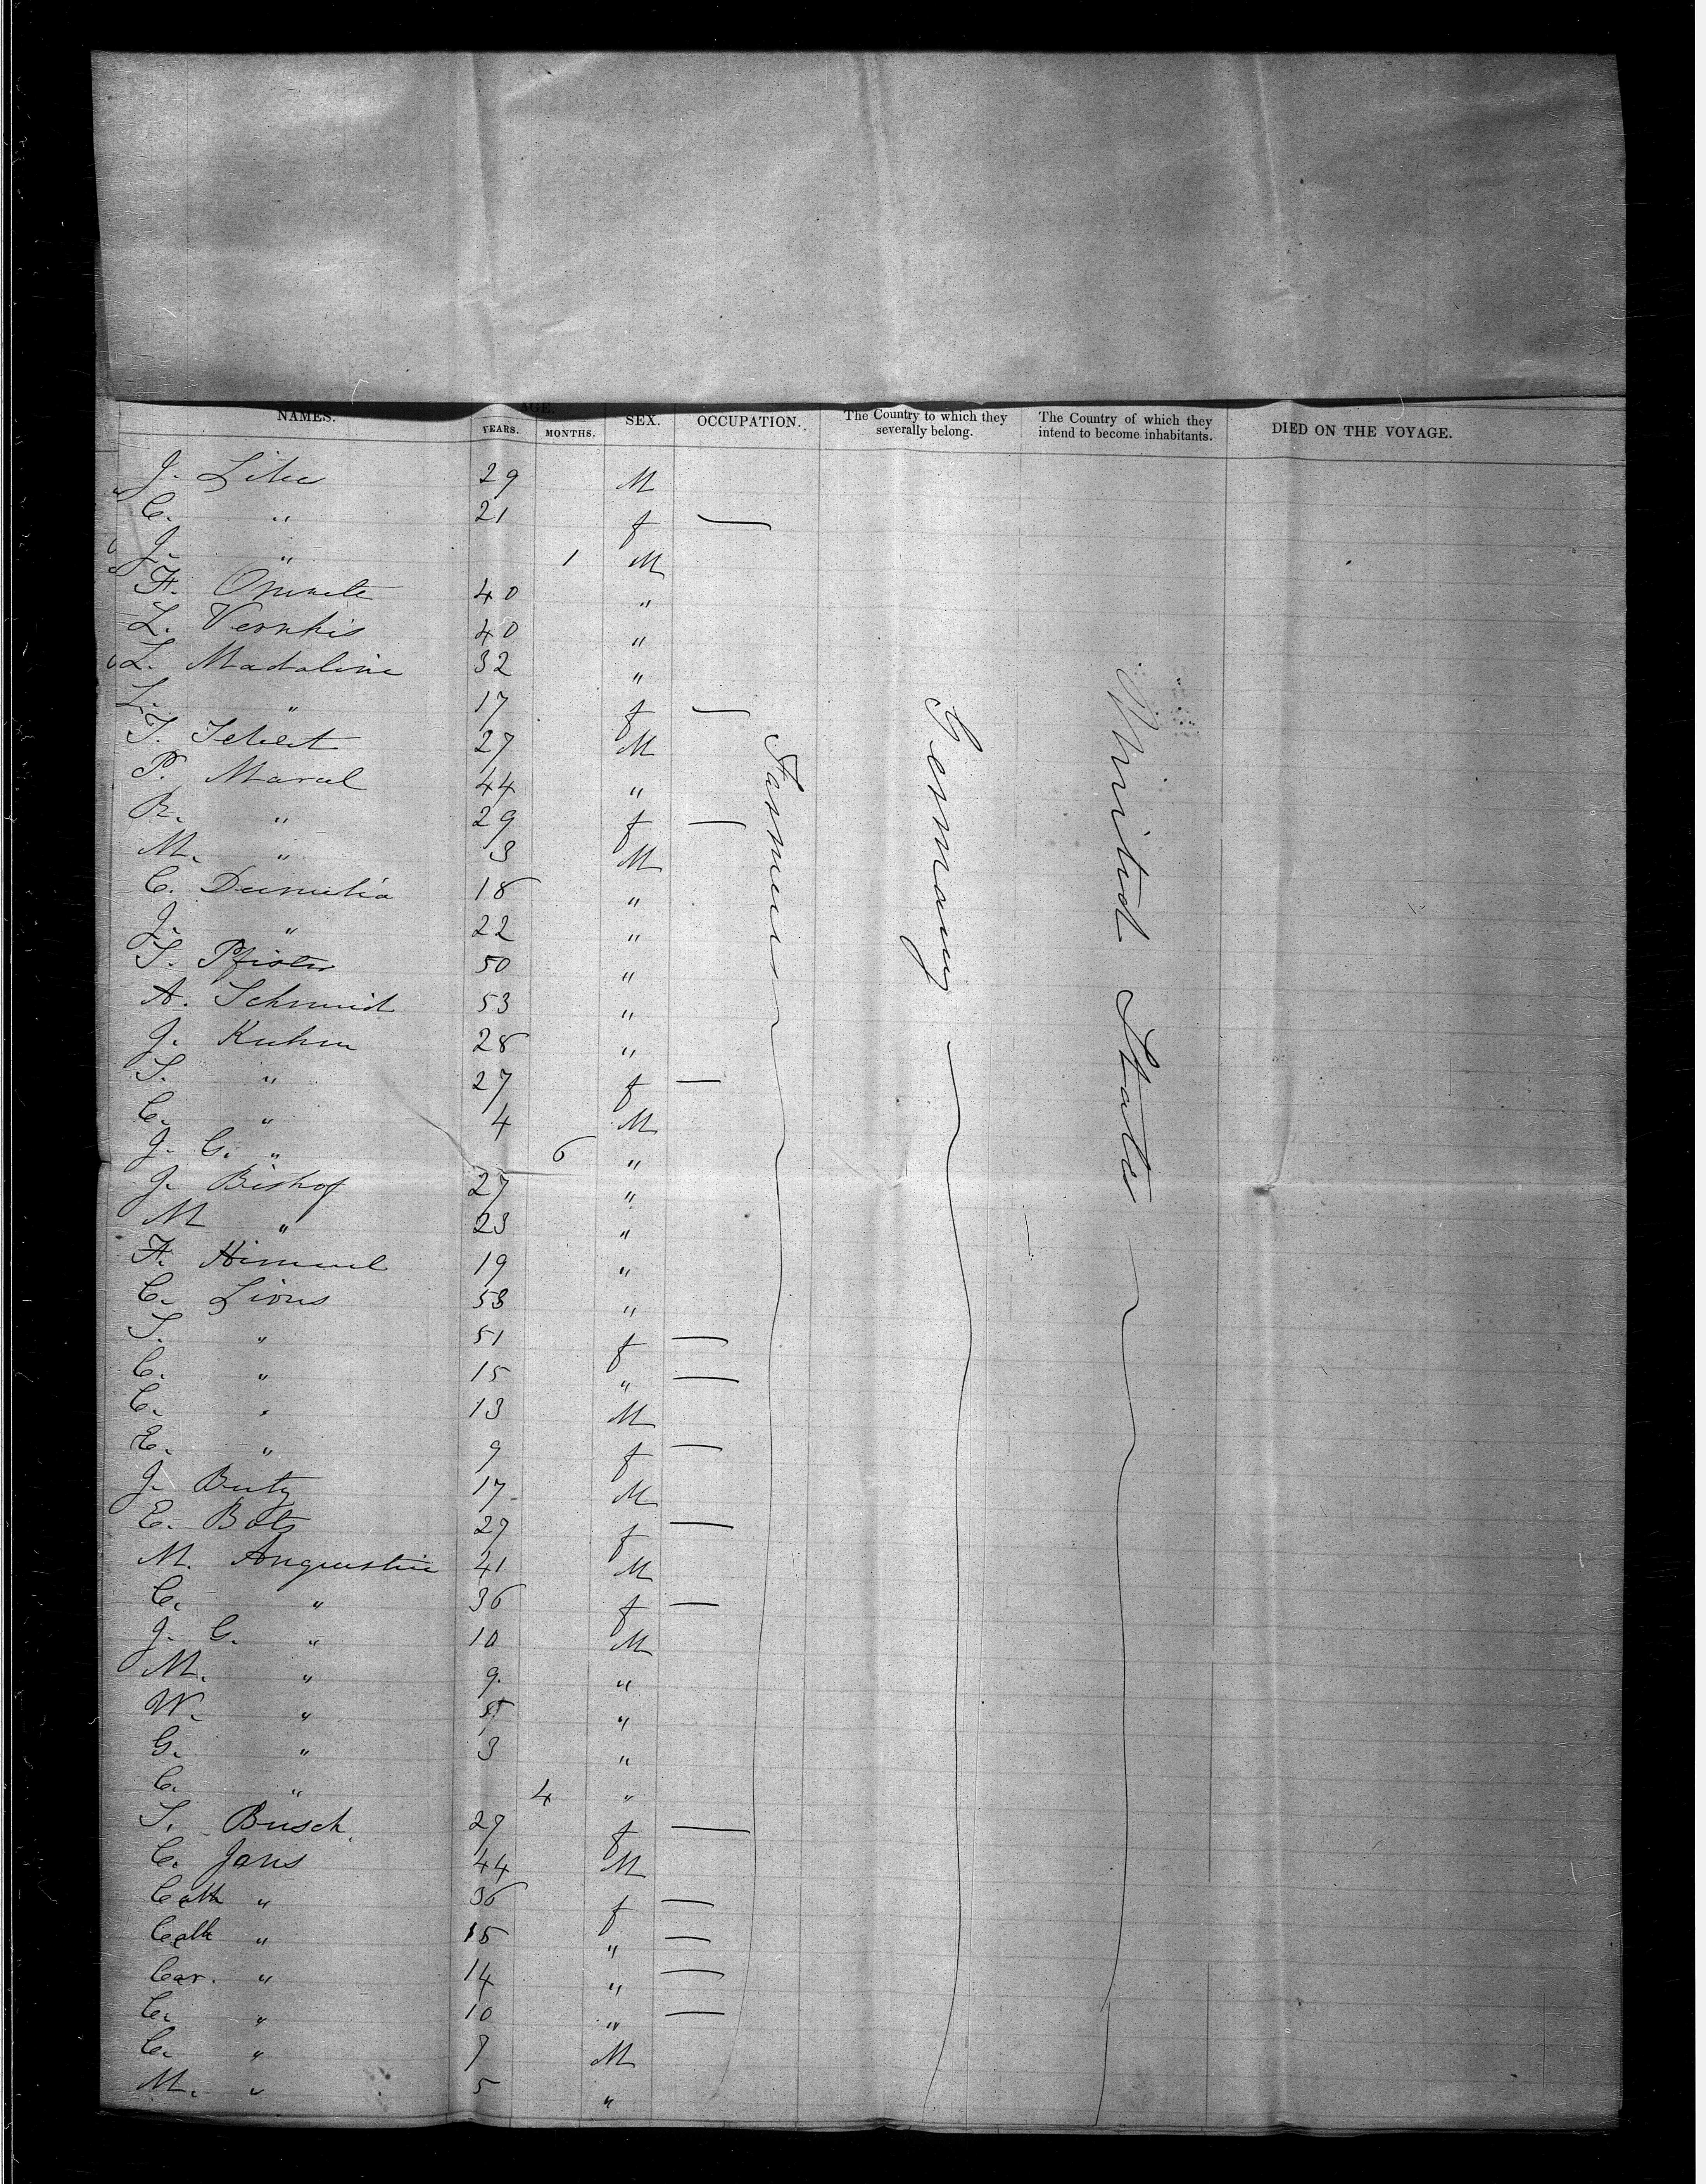 NAMES. AGE. SEX. OCCUPATION. The Country to which they severally belong. The Country of which they intend to become inhabitants. DIED ON THE VOYAGE.
YEARS. MONTHS.
J. 29 M
C. " 21 f —
J. " 1 M
F. 40 "
L. 40 "
L. Madaline 32 "
L. " 17 f —
27 M
P. 44 "
R. " 29 f —
M. " 3 M
C. 18 "
J. " 22 "
S. Pfister 50 "
A. Schmid 53 "
J. Kuhn 28 "
S. " 27 f —
C. " 4 M
J. G. " 6 "
J. Bishof 27 "
M " 23 "
F. Himmel 19 "
C. Lions 53 "
S. " 51 f —
C. " 15 " —
C. " 13 M
E. " 9 f —
J. 17 M
E. Bots 27 f —
M. Angustin 41 M
C. " 36 f —
J. G. " 10 M
M. " 9. "
W. " 5 "
G. " 3 "
C. " 4 "
S. Busch 27 f —
C. Jans 44 M
Cath " 36 f —
Cath " 15 " —
Car. " 14 " —
C. " 10 " —
C. " 7 M
M. " 5 "
Farmers
Germany
United States